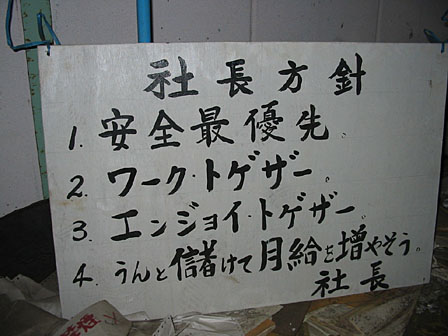 社長方針
1. 安全最優先。
2. ワーク・トゲザー。
3. エンジョイ・トゲザー。
4. うんと儲けて月給を増やそう。
社長